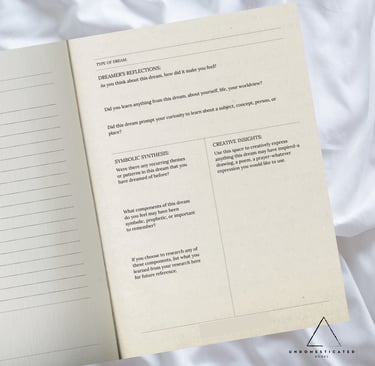 TYPE OF DREAM:
DREAMER'S REFLECTIONS:
As you think about this dream, how did it make you feel?
Did you learn anything from this dream, about yourself, life, your worldview?
Did this dream prompt your curiosity to learn about a subject, concept, person, or
place?
SYMBOLIC SYNTHESIS:
Were there any recurring themes
or patterns in this dream that you
have dreamed of before?
What components of this dream
do you feel may have been
symbolic, prophetic, or important
to remember?
If you choose to research any of
these components, list what you
learned from your research here
for future reference.
CREATIVE INSIGHTS:
Use this space to creatively express
anything this dream may have inspired-a
drawing, a poem, a prayer-whatever
expression you would like to use.
UNDOMESTICATED